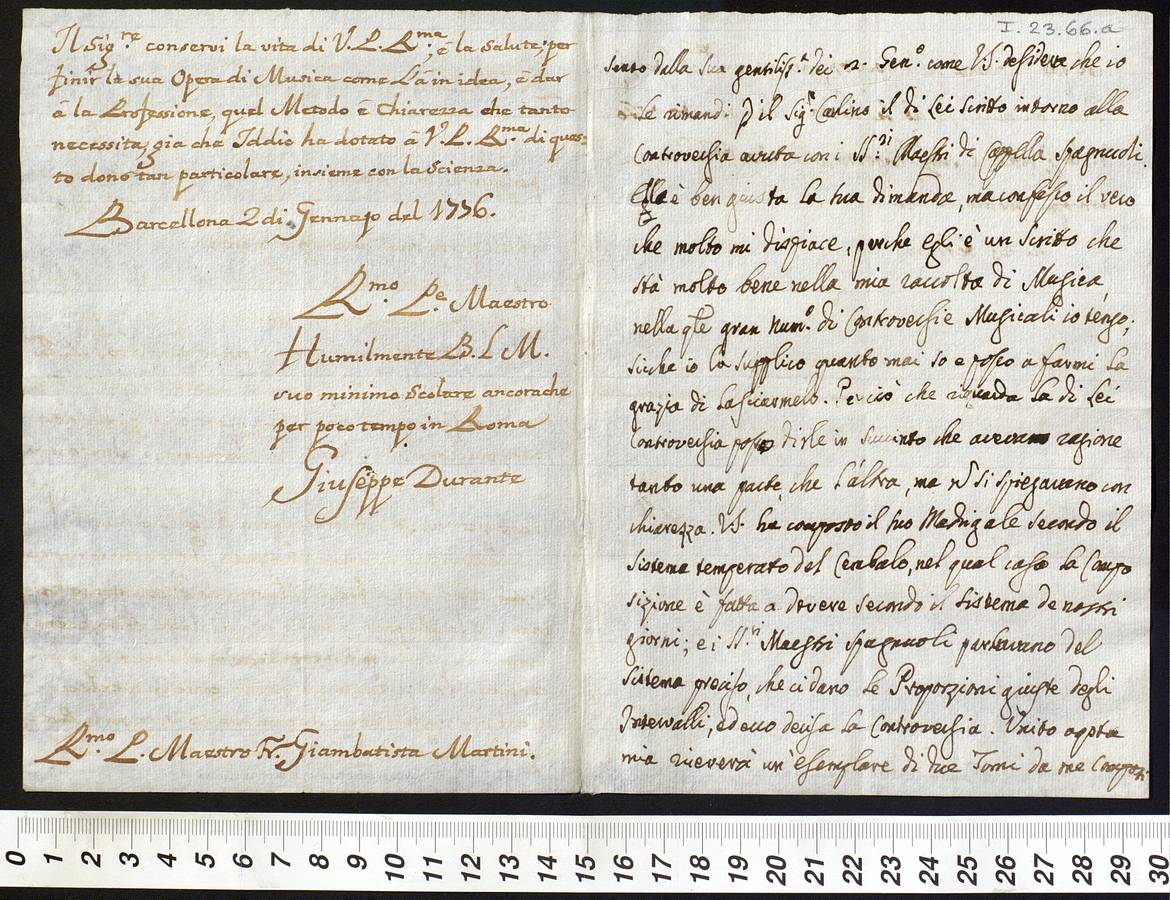 Il Sig.re conservi la vita di V.P. R.ma, é la salute, per
finir la sua Opera di Musica come L'á in idea, é dar
á la Professione, quel Metodo é Chiarezza che tanto
necessita, gia che Iddio ha dotato á V.P. R.ma di ques-
to dono tan particolare, insieme con la Scienza.
Barcellona 2 di Gennajo del 1776.
R.mo P.e Maestro
Humilmente B. L. M.
suo minimo Scolare ancorache
per poco tempo in Roma
Giuseppe Durante
R.mo P. Maestro Fr. Giambatista Martini.
I. 23.66.a
Sento dalla sua gentiliss.a dei 2. Gen.o come V.S. desidera che io
Le rimandi p il Sig.r Carlino il di Lei Scritto intorno alla
Controversia avuta con i SS.ri Maestri di Cappella Spagnuoli.
Ella è ben giusta la sua dimanda, ma confesso il vero
che molto mi dispiace, perche egli è un Scritto che
stà molto bene nella mia raccolta di Musica,
nella qle gran Num.o di Controversie Musicali io tengo;
sicche io la supplico quanto mai so e posso a farmi la
grazia di lasciarmelo. Perciò che riguarda la di Lei
Controversia posso dirle in succinto che avevano ragione
tanto una parte, che l'altra, ma n si spiegavano con
chiarezza. V.S. ha composto il suo Madrigale secondo il
sistema temperato del Cembalo, nel qual caso la Compo
sizione è fatta a dovere secondo il sistema de nostri
giorni; e i SS.ri Maestri Spagnuoli parlavano del
sistema preciso, che ci dano le Proporzioni giuste degli
Intervalli, ed ecco decisa la Controversia. Unito a
mia riceverà un' Esemplare di due Tomi da me